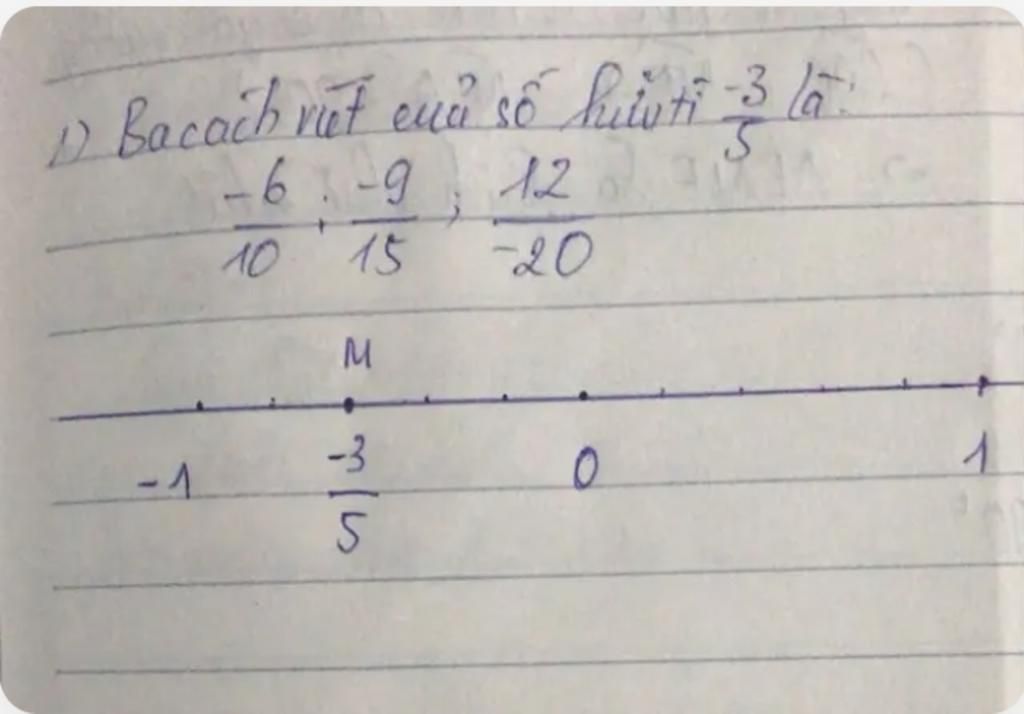 1) Ba cách viết của số hữu tỉ -3/5 là:
-6/10 ; -9/15 ; 12/-20
M
-1 -3/5 0 1